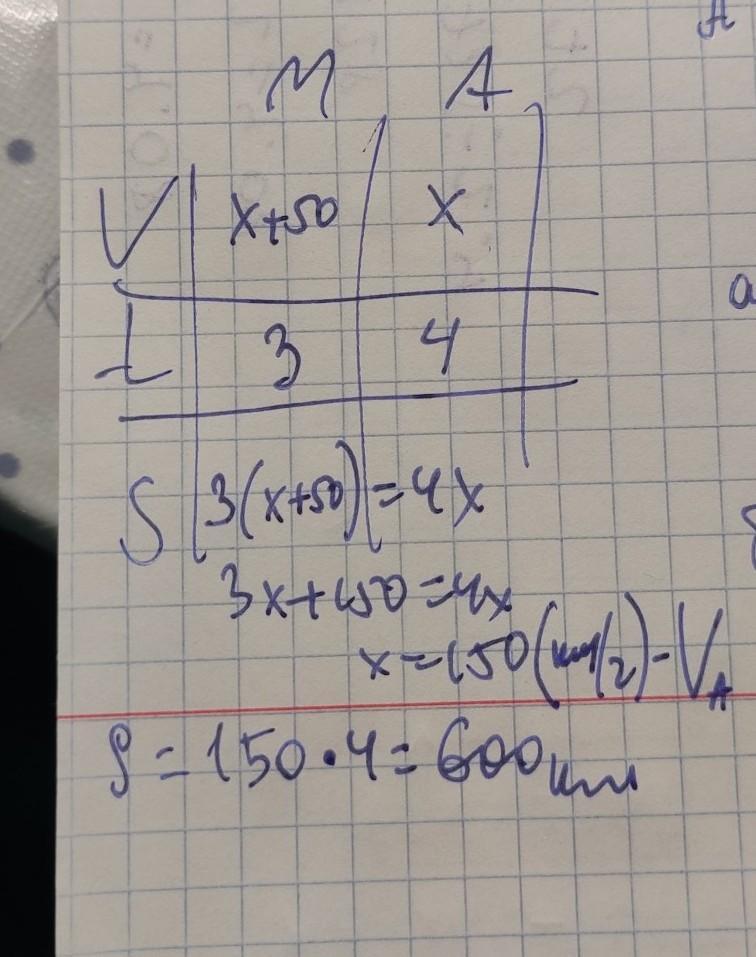 М А
V x+50 x
t 3 4
S 3(x+50)=4x
3x+150=4x
x=150(км/ч)-V_A
S=150·4=600км